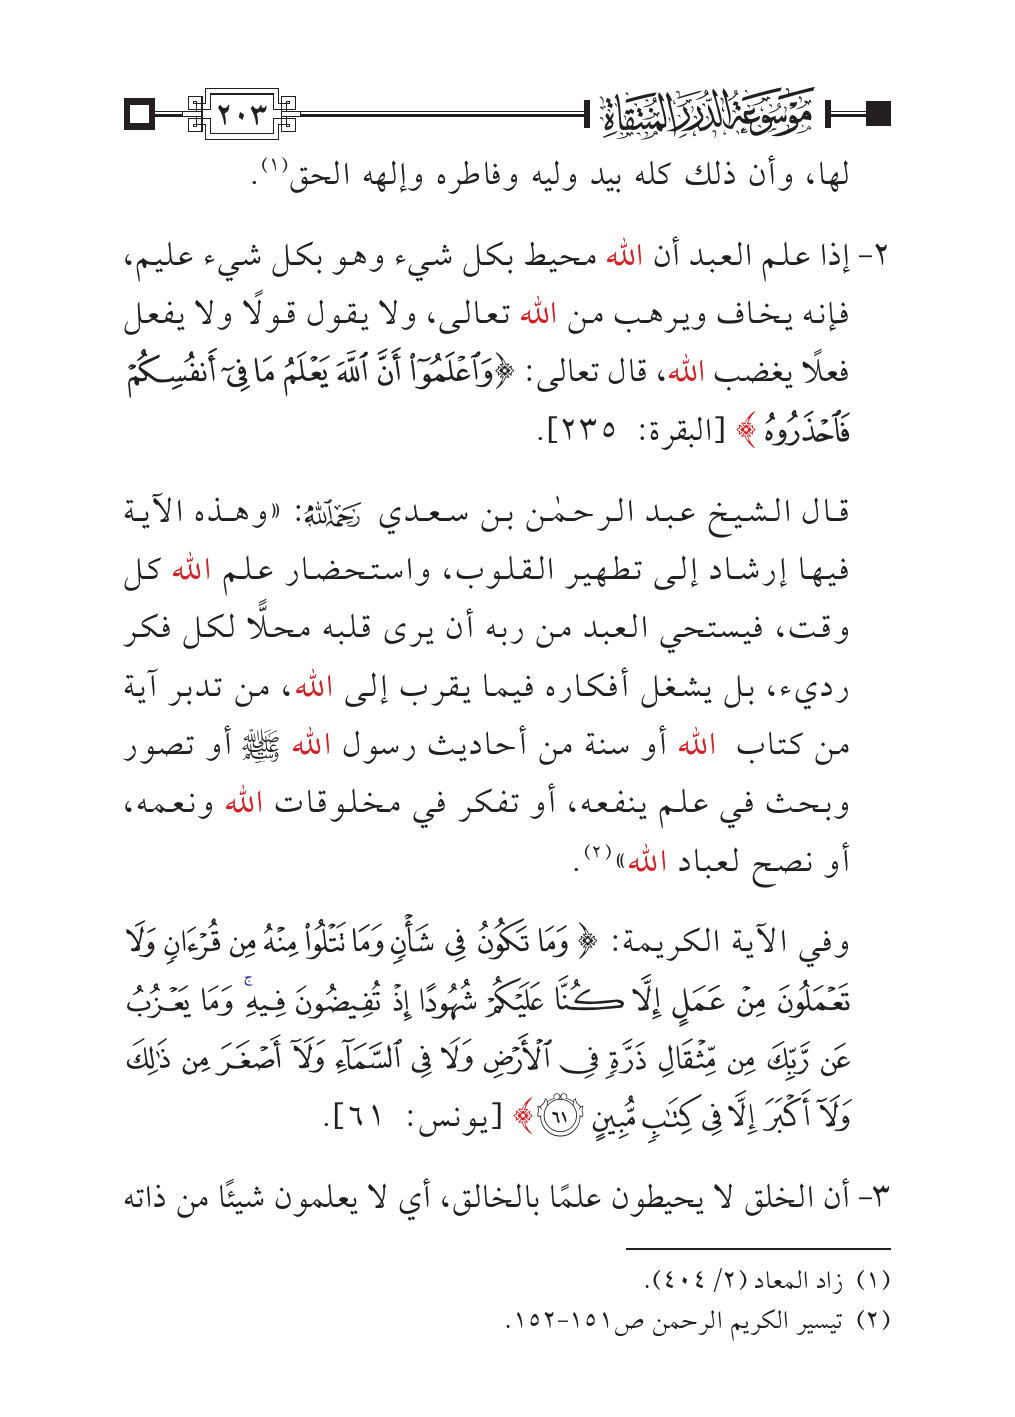 موسوعة الدرر المنتقاة
٢٠٣
لها، وأن ذلك كله بيد وليه وفاطره وإلهه الحق(١).
٢- إذا علم العبد أن الله محيط بكل شيء وهو بكل شيء عليم،
فإنه يخاف ويرهب من الله تعالى، ولا يقول قولًا ولا يفعل
فعلًا يغضب الله، قال تعالى: ﴿وَٱعْلَمُوٓا۟ أَنَّ ٱللَّهَ يَعْلَمُ مَا فِىٓ أَنفُسِكُمْ
فَٱحْذَرُوهُ ﴾ [البقرة: ٢٣٥].
قال الشيخ عبد الرحمٰن بن سعدي رحمه الله: «وهذه الآية
فيها إرشاد إلى تطهير القلوب، واستحضار علم الله كل
وقت، فيستحي العبد من ربه أن يرى قلبه محلًّا لكل فكر
رديء، بل يشغل أفكاره فيما يقرب إلى الله، من تدبر آية
من كتاب الله أو سنة من أحاديث رسول الله ﷺ أو تصور
وبحث في علم ينفعه، أو تفكر في مخلوقات الله ونعمه،
أو نصح لعباد الله»(٢).
وفي الآية الكريمة: ﴿ وَمَا تَكُونُ فِى شَأْنٍ وَمَا نَتْلُوا۟ مِنْهُ مِن قُرْءَانٍ وَلَا
تَعْمَلُونَ مِنْ عَمَلٍ إِلَّا كُنَّا عَلَيْكُمْ شُهُودًا إِذْ تُفِيضُونَ فِيهِ ۚ وَمَا يَعْزُبُ
عَن رَّبِّكَ مِن مِّثْقَالِ ذَرَّةٍ فِى ٱلْأَرْضِ وَلَا فِى ٱلسَّمَآءِ وَلَآ أَصْغَرَ مِن ذَٰلِكَ
وَلَآ أَكْبَرَ إِلَّا فِى كِتَـٰبٍ مُّبِينٍ ٦١ ﴾ [يونس: ٦١].
٣- أن الخلق لا يحيطون علمًا بالخالق، أي لا يعلمون شيئًا من ذاته
(١) زاد المعاد (٢/ ٤٠٤).
(٢) تيسير الكريم الرحمن ص١٥١-١٥٢.